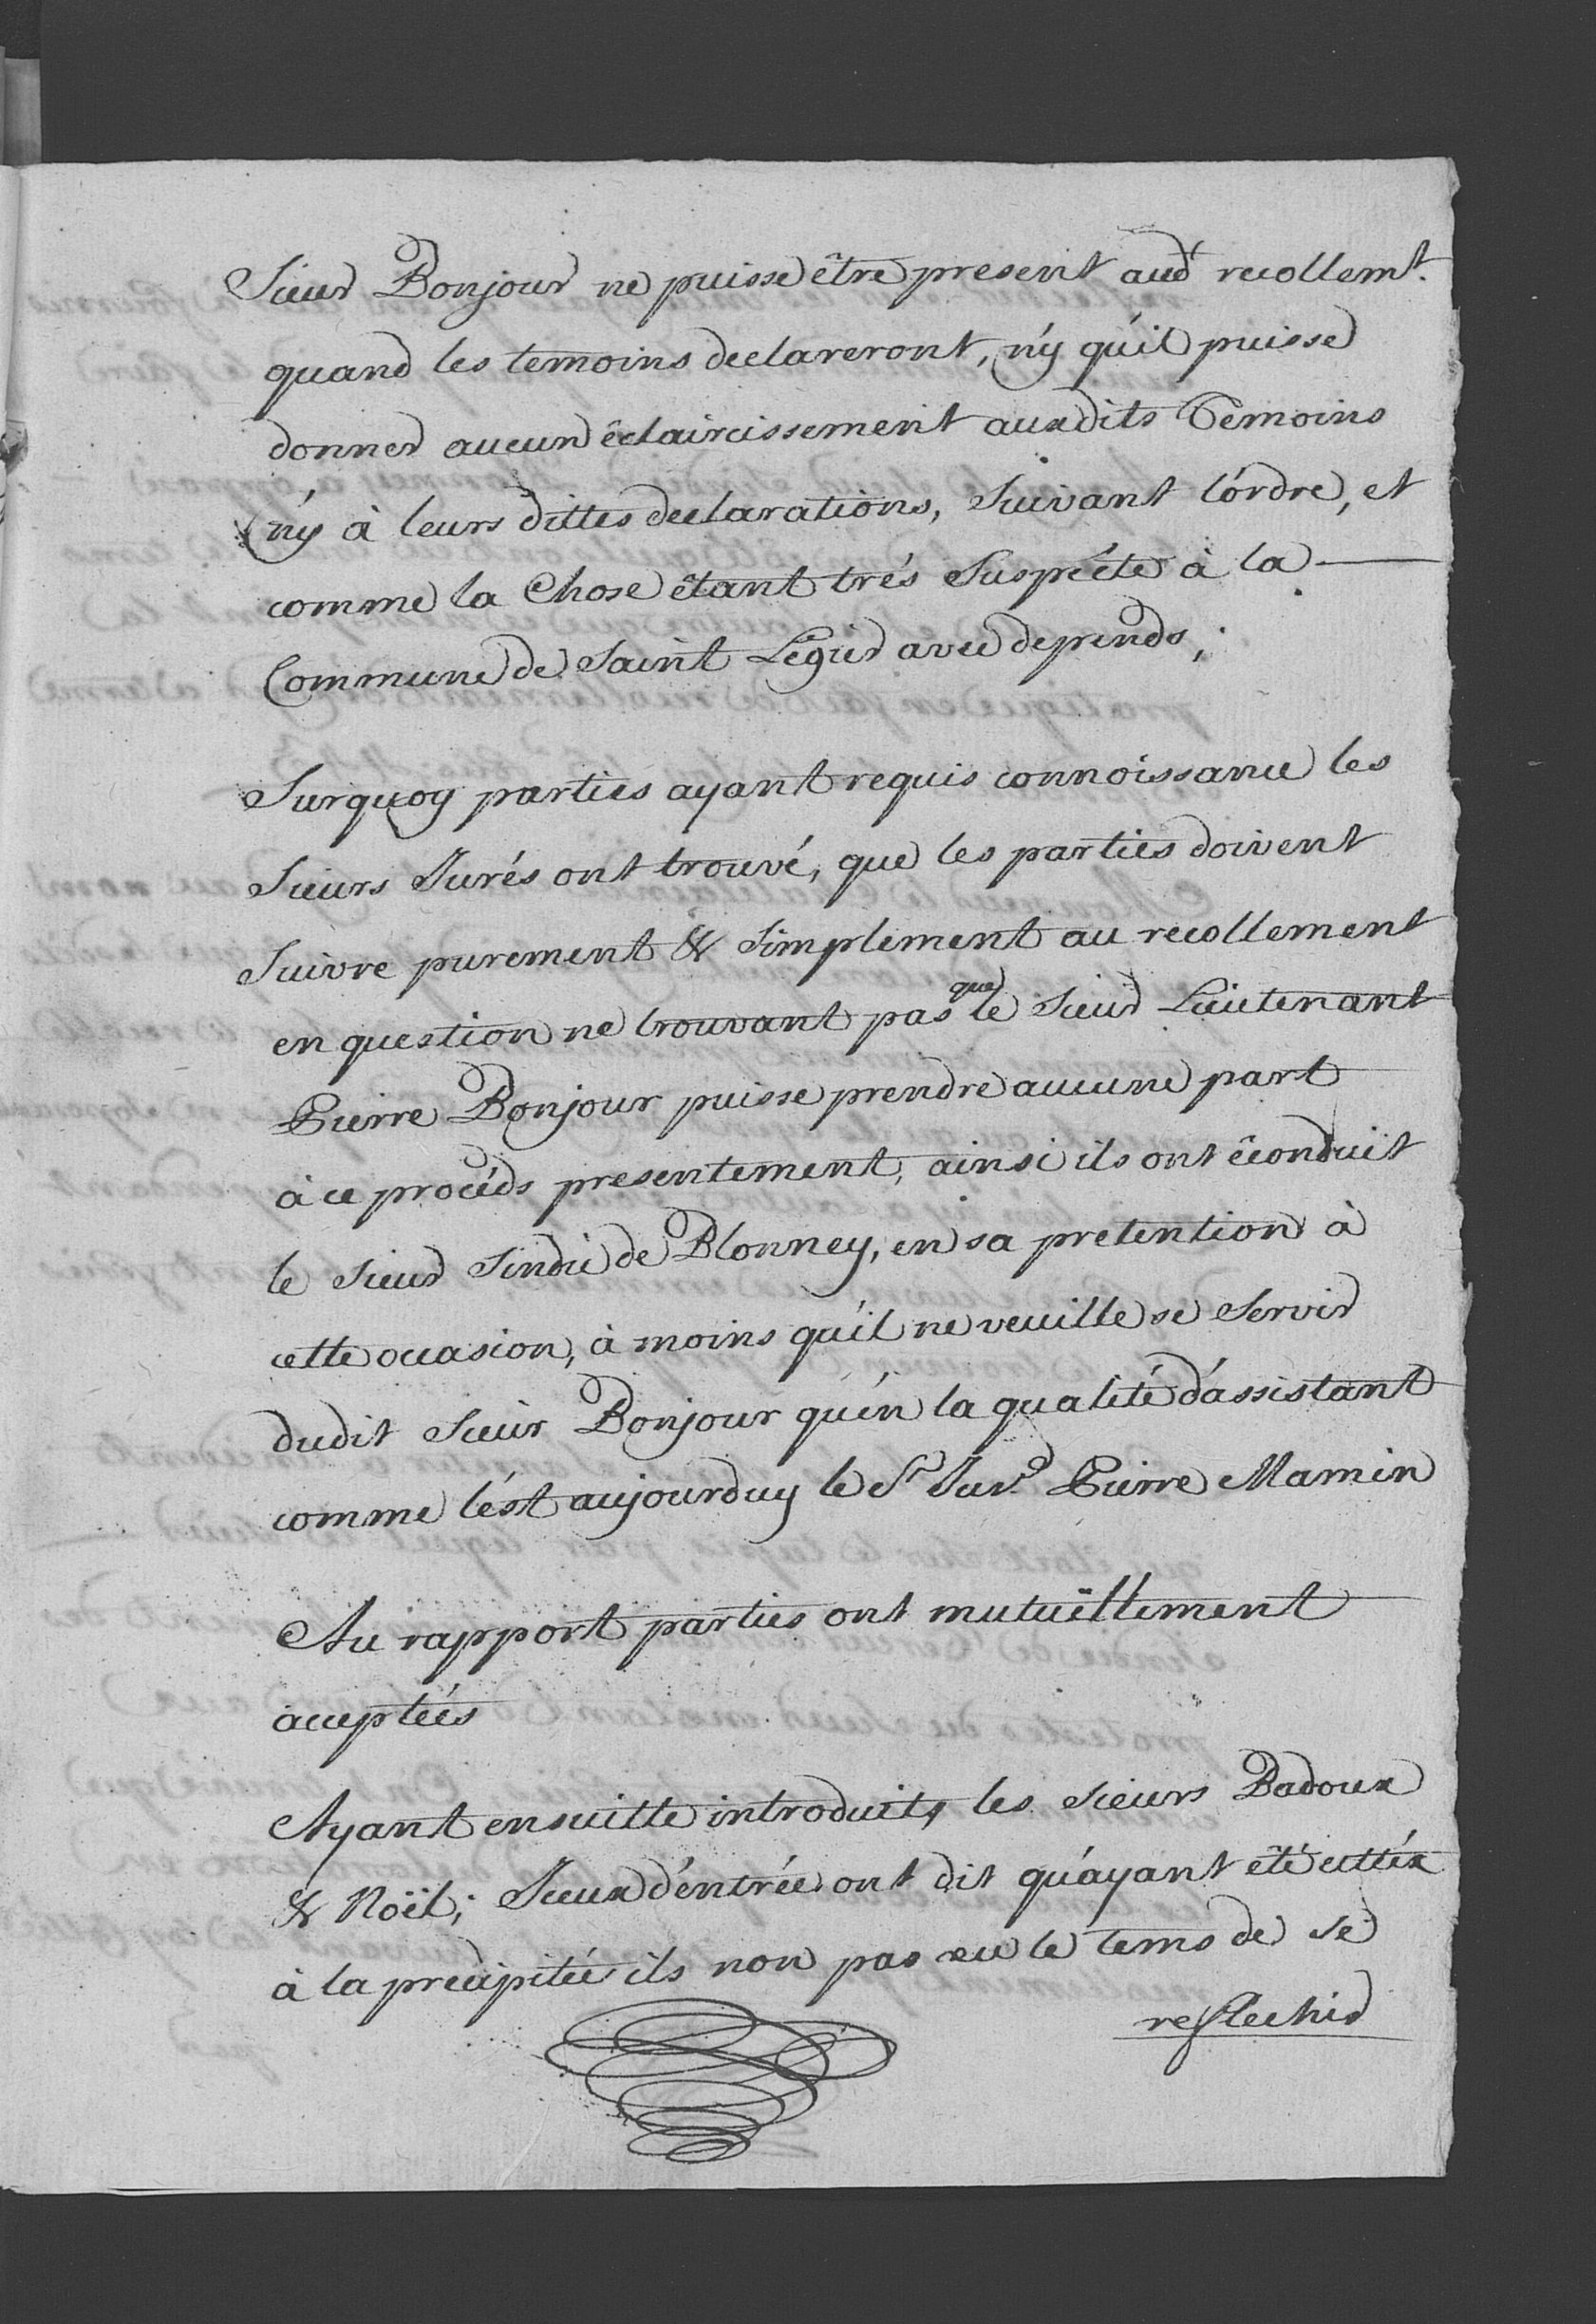 Sieur Bonjour ne puisse être present aud.t recollem.t
quand les temoins declareront, n'y qu'il puisse
donner aucun éclaircissement auxdits Temoins
n'y à leurs dittes declarations, Suivant l'órdre, et
comme la Chose étant trés Suspécte à la
Commune de Saint Légier avec depends;
Surquoy parties ayant requis connoissance les
Sieurs Jurés ont trouvé, que les parties doivent
Suivre purement & Simplement au recollement
en question ne trouvant pas que le Sieur Lieutenant
Pierre Bonjour puisse prendre aucune part
à ce procéds presentement, ainsi ils ont éconduit
le Sieur Sindic de Blonney, en sa pretention à
cette occasion, à moins qu'il ne veuille se Servir
dudit Sieur Bonjour qu'én la qualité d'ássistant
comme l'ést aujourduy le S.r Jur.é Pierre Mamin
Au rapport parties ont mutuëllement
acceptéés
Ayant ensuitte introduits les Sieurs Badoux
& Noël; Iceux d'éntrée ont dit qu'áyant été cittéz
à la precipitée ils non pas eu le tems de se
reflechir